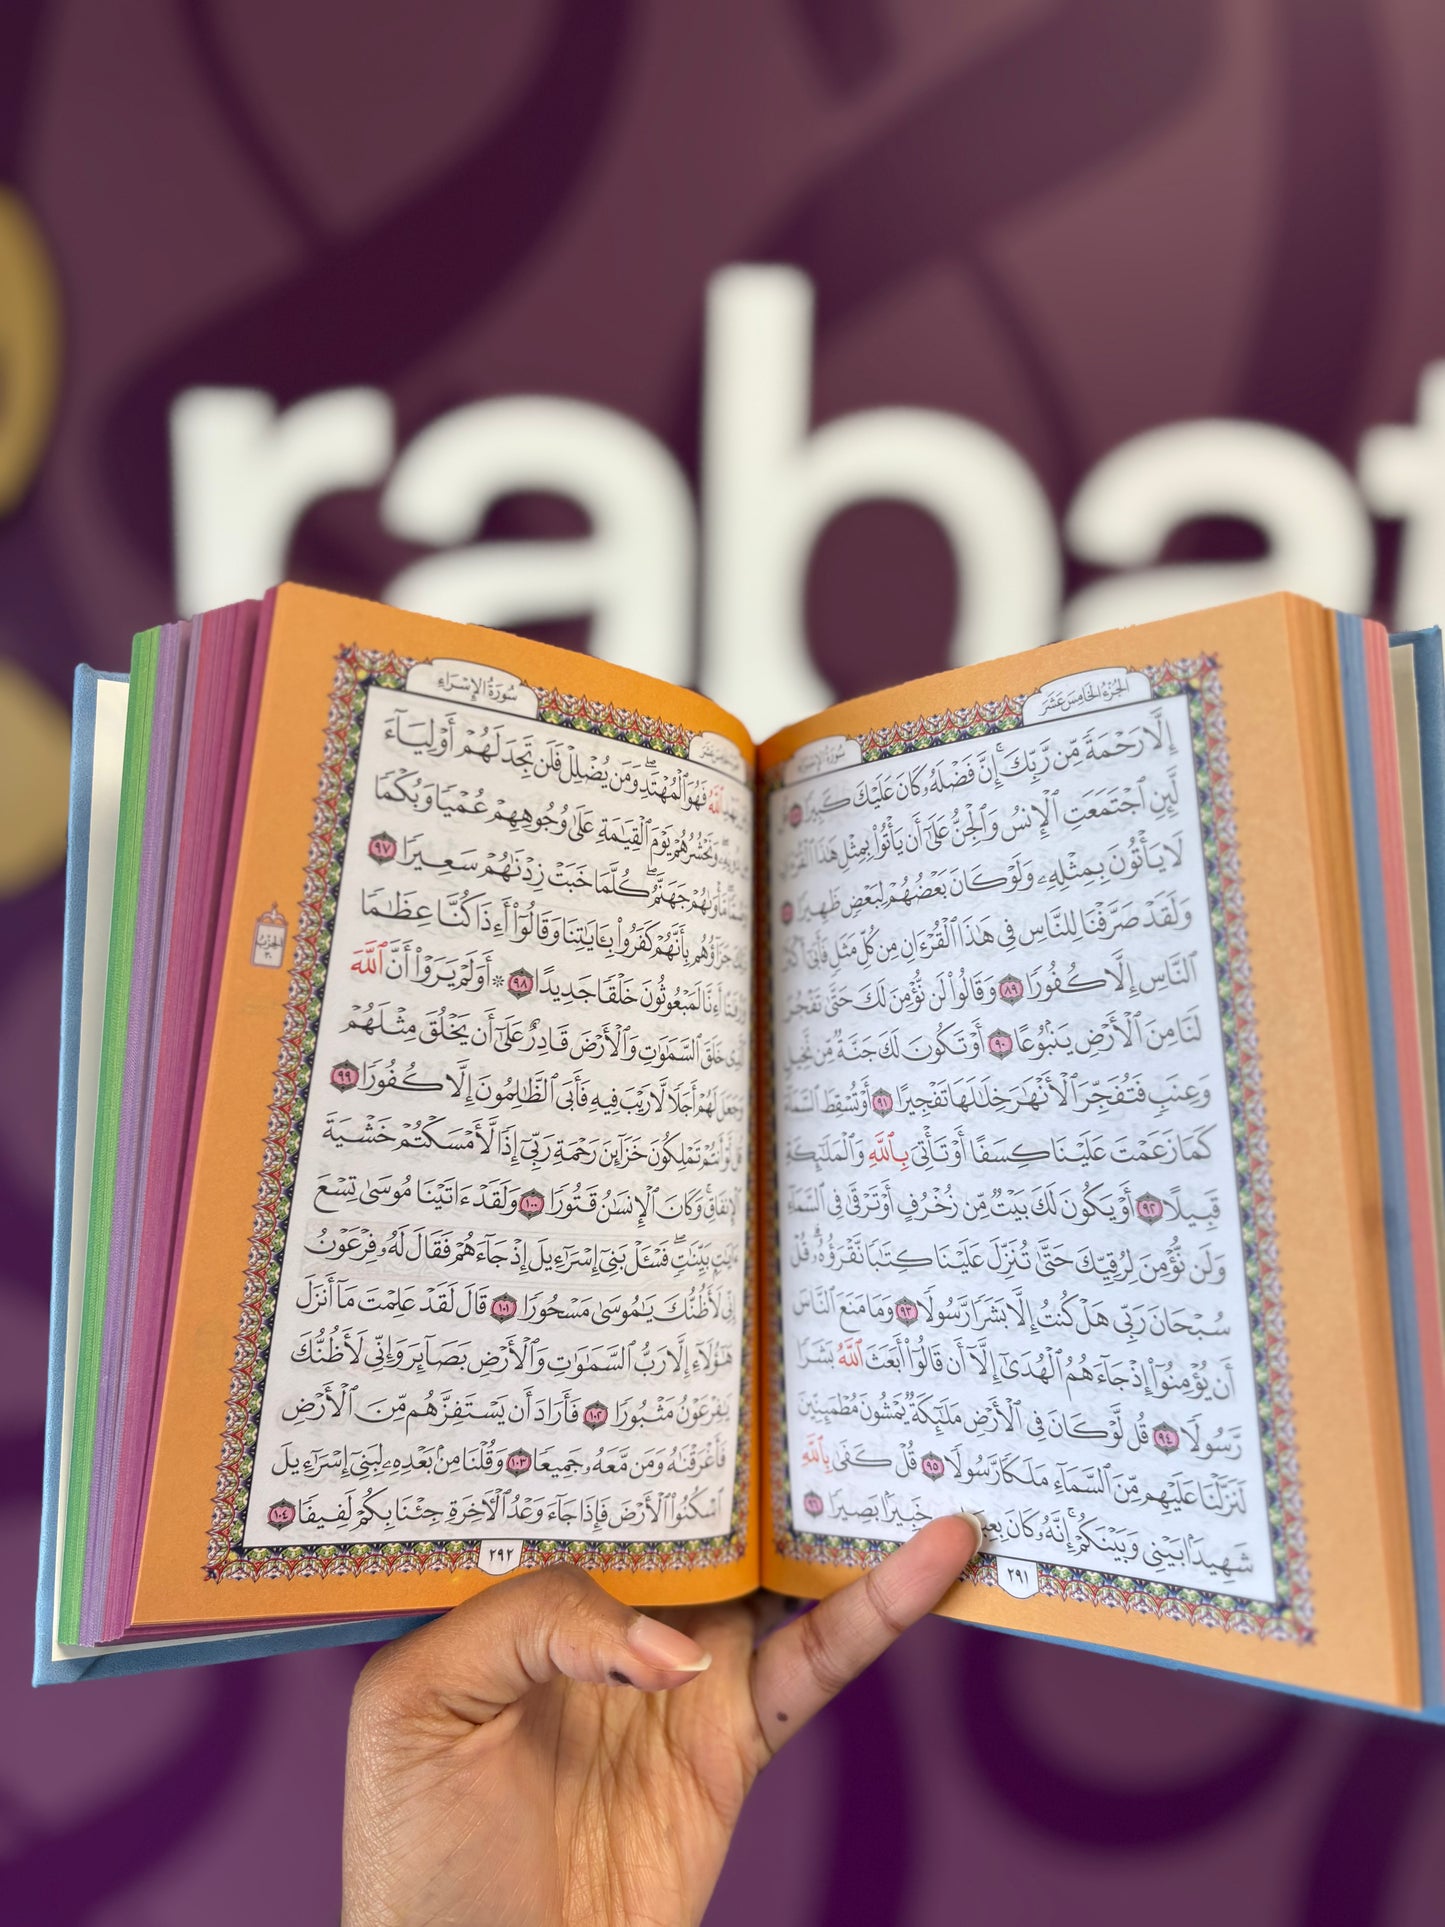 rabat
الجُزْءُ الخَامِسَ عَشَرَ
سُورَةُ الإِسْرَاءِ
إِلَّا رَحْمَةً مِّن رَّبِّكَۚ إِنَّ فَضْلَهُۥ كَانَ عَلَيْكَ كَبِيرًا
لَّئِنِ ٱجْتَمَعَتِ ٱلْإِنسُ وَٱلْجِنُّ عَلَىٰٓ أَن يَأْتُوا۟ بِمِثْلِ هَٰذَا ٱلْقُرْءَانِ
لَا يَأْتُونَ بِمِثْلِهِۦ وَلَوْ كَانَ بَعْضُهُمْ لِبَعْضٍ ظَهِيرًا
وَلَقَدْ صَرَّفْنَا لِلنَّاسِ فِى هَٰذَا ٱلْقُرْءَانِ مِن كُلِّ مَثَلٍ فَأَبَىٰٓ أَكْثَرُ
ٱلنَّاسِ إِلَّا كُفُورًا ٨٩ وَقَالُوا۟ لَن نُّؤْمِنَ لَكَ حَتَّىٰ تَفْجُرَ
لَنَا مِنَ ٱلْأَرْضِ يَنۢبُوعًا ٩٠ أَوْ تَكُونَ لَكَ جَنَّةٌ مِّن نَّخِيلٍ
وَعِنَبٍ فَتُفَجِّرَ ٱلْأَنْهَٰرَ خِلَٰلَهَا تَفْجِيرًا ٩١ أَوْ تُسْقِطَ ٱلسَّمَآءَ
كَمَا زَعَمْتَ عَلَيْنَا كِسَفًا أَوْ تَأْتِىَ بِٱللَّهِ وَٱلْمَلَٰٓئِكَةِ
قَبِيلًا ٩٢ أَوْ يَكُونَ لَكَ بَيْتٌ مِّن زُخْرُفٍ أَوْ تَرْقَىٰ فِى ٱلسَّمَآءِ
وَلَن نُّؤْمِنَ لِرُقِيِّكَ حَتَّىٰ تُنَزِّلَ عَلَيْنَا كِتَٰبًا نَّقْرَؤُهُۥۗ قُلْ
سُبْحَانَ رَبِّى هَلْ كُنتُ إِلَّا بَشَرًا رَّسُولًا ٩٣ وَمَا مَنَعَ ٱلنَّاسَ
أَن يُؤْمِنُوٓا۟ إِذْ جَآءَهُمُ ٱلْهُدَىٰٓ إِلَّآ أَن قَالُوٓا۟ أَبَعَثَ ٱللَّهُ بَشَرًا
رَّسُولًا ٩٤ قُل لَّوْ كَانَ فِى ٱلْأَرْضِ مَلَٰٓئِكَةٌ يَمْشُونَ مُطْمَئِنِّينَ
لَنَزَّلْنَا عَلَيْهِم مِّنَ ٱلسَّمَآءِ مَلَكًا رَّسُولًا ٩٥ قُلْ كَفَىٰ بِٱللَّهِ
شَهِيدًۢا بَيْنِى وَبَيْنَكُمْۚ إِنَّهُۥ كَانَ خَبِيرًۢا بَصِيرًا ٩٦
٢٩١
سُورَةُ الإِسْرَاءِ
يَهْدِ ٱللَّهُ فَهُوَ ٱلْمُهْتَدِۖ وَمَن يُضْلِلْ فَلَن تَجِدَ لَهُمْ أَوْلِيَآءَ
وَنَحْشُرُهُمْ يَوْمَ ٱلْقِيَٰمَةِ عَلَىٰ وُجُوهِهِمْ عُمْيًا وَبُكْمًا
مَّأْوَىٰهُمْ جَهَنَّمُۖ كُلَّمَا خَبَتْ زِدْنَٰهُمْ سَعِيرًا ٩٧
جَزَآؤُهُم بِأَنَّهُمْ كَفَرُوا۟ بِـَٔايَٰتِنَا وَقَالُوٓا۟ أَءِذَا كُنَّا عِظَٰمًا
أَءِنَّا لَمَبْعُوثُونَ خَلْقًا جَدِيدًا ٩٨ ۞ أَوَلَمْ يَرَوْا۟ أَنَّ ٱللَّهَ
ٱلَّذِى خَلَقَ ٱلسَّمَٰوَٰتِ وَٱلْأَرْضَ قَادِرٌ عَلَىٰٓ أَن يَخْلُقَ مِثْلَهُمْ
وَجَعَلَ لَهُمْ أَجَلًا لَّا رَيْبَ فِيهِ فَأَبَى ٱلظَّٰلِمُونَ إِلَّا كُفُورًا ٩٩
قُل لَّوْ أَنتُمْ تَمْلِكُونَ خَزَآئِنَ رَحْمَةِ رَبِّىٓ إِذًا لَّأَمْسَكْتُمْ خَشْيَةَ
ٱلْإِنفَاقِۚ وَكَانَ ٱلْإِنسَٰنُ قَتُورًا ١٠٠ وَلَقَدْ ءَاتَيْنَا مُوسَىٰ تِسْعَ
ءَايَٰتٍۭ بَيِّنَٰتٍۖ فَسْـَٔلْ بَنِىٓ إِسْرَٰٓءِيلَ إِذْ جَآءَهُمْ فَقَالَ لَهُۥ فِرْعَوْنُ
إِنِّى لَأَظُنُّكَ يَٰمُوسَىٰ مَسْحُورًا ١٠١ قَالَ لَقَدْ عَلِمْتَ مَآ أَنزَلَ
هَٰٓؤُلَآءِ إِلَّا رَبُّ ٱلسَّمَٰوَٰتِ وَٱلْأَرْضِ بَصَآئِرَ وَإِنِّى لَأَظُنُّكَ
يَٰفِرْعَوْنُ مَثْبُورًا ١٠٢ فَأَرَادَ أَن يَسْتَفِزَّهُم مِّنَ ٱلْأَرْضِ
فَأَغْرَقْنَٰهُ وَمَن مَّعَهُۥ جَمِيعًا ١٠٣ وَقُلْنَا مِنۢ بَعْدِهِۦ لِبَنِىٓ إِسْرَٰٓءِيلَ
ٱسْكُنُوا۟ ٱلْأَرْضَ فَإِذَا جَآءَ وَعْدُ ٱلْءَاخِرَةِ جِئْنَا بِكُمْ لَفِيفًا ١٠٤
الحِزْبُ
٣٠
٢٩٢